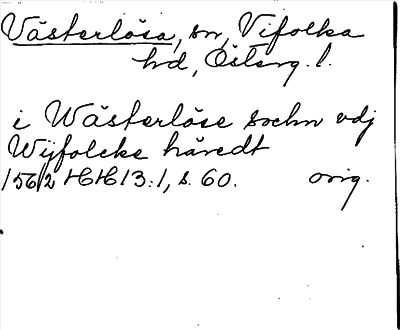 Västerlösa, sn, Vifolka
hd, Österg. l.
i Wästerlöse sockn vdj
Wijfolcke häredt
1562 HH 13:1, s. 60. orig.